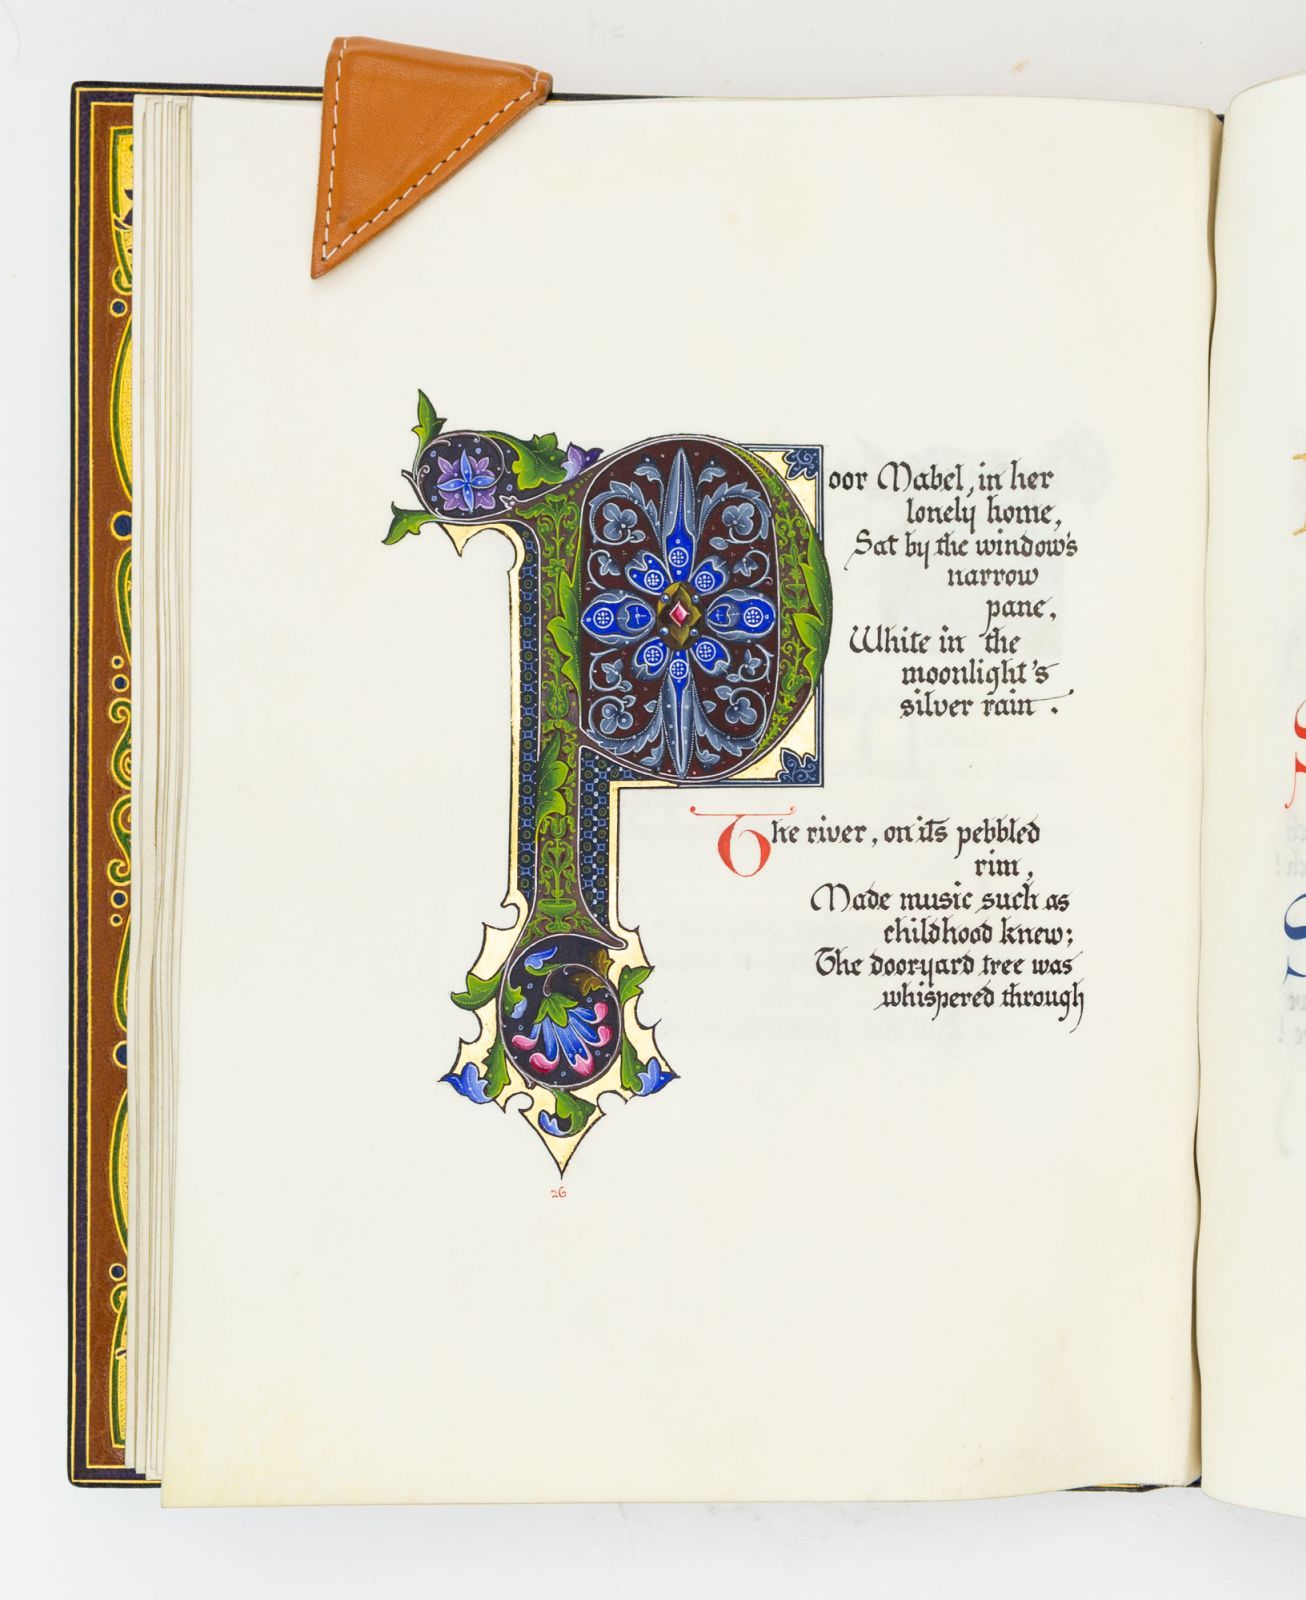 Poor Mabel, in her
lonely home,
Sat by the window's
narrow
pane,
White in the
moonlight's
silver rain.
The river, on its pebbled
rim,
Made music such as
childhood knew;
The door-yard tree was
whispered through
26